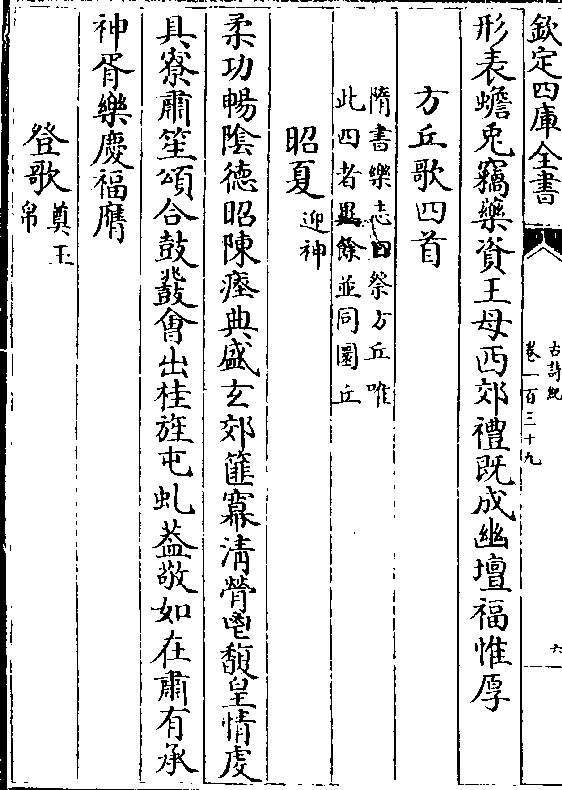 欽定四庫全書
古詩紀
卷一百三十九
六
形表蟾兎竊藥資王母西郊禮既成幽壇福惟厚
方丘歌四首
隋書樂志曰祭方丘唯
此四者異餘並同圜丘
昭夏 迎神
柔功暢隂德昭陳瘞典盛玄郊篚冪清膋鬯馥皇情虔
具寮肅笙頌合鼓鼗會出桂旌屯虬葢敬如在肅有承
神胥樂慶福膺
登歌 奠玉帛